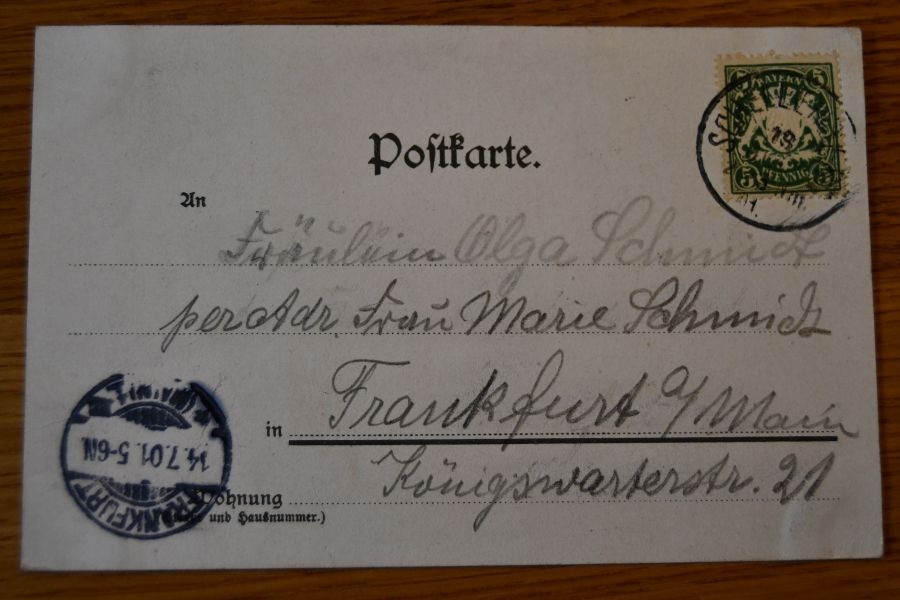 Postkarte.
BAYERN
5 5
5 PFENNIG 5
An
Fräulein Olga Schmidt
per Adr. Frau Marie Schmidt
in Frankfurt a/Main
Königswarterstr. 21
Wohnung
und Hausnummer.)
FRANKFURT
14.7.01. 5-6N
(MAIN) 1